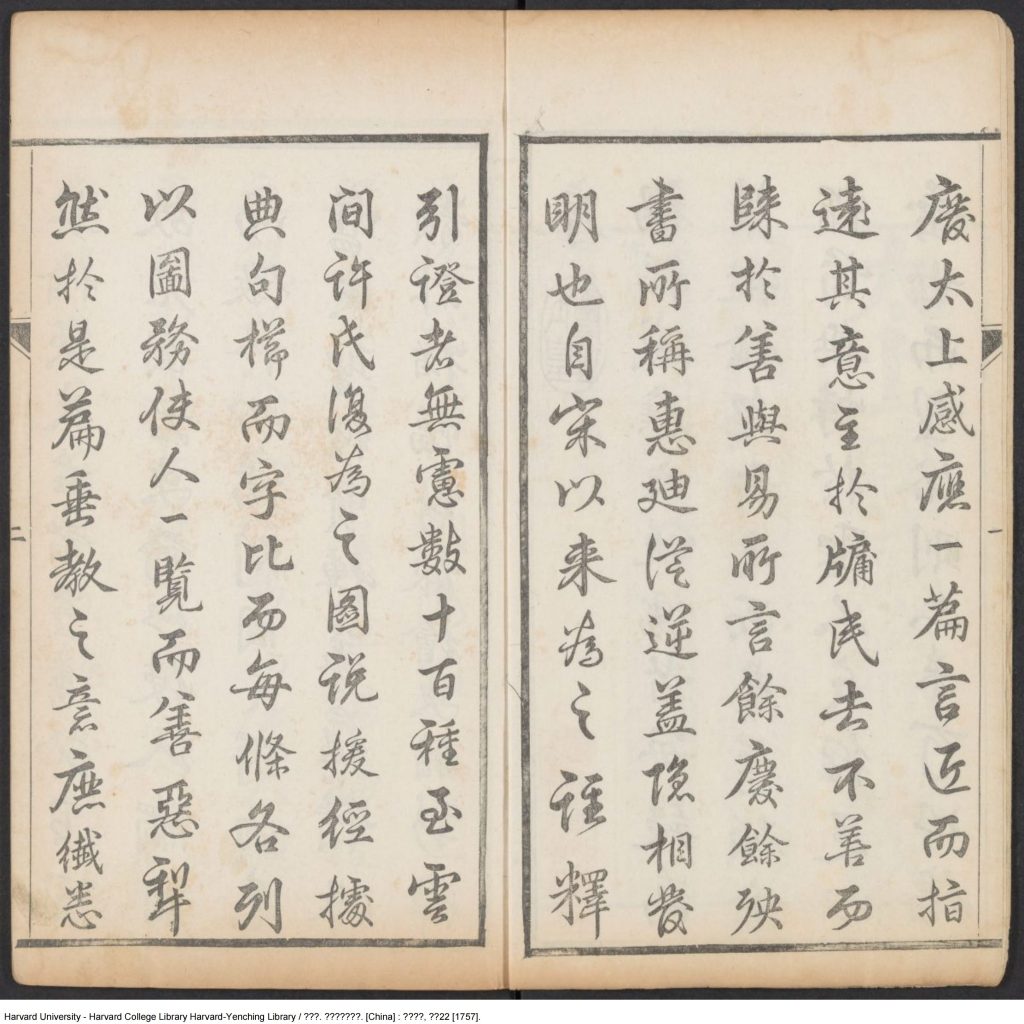 慶太上感應一篇言近而指
遠其意主於牖民去不善而
歸於善與易所言餘慶餘殃
書所稱惠廸從逆蓋隱相發
明也自宋以来為之註釋
一
引證者無慮數十百種至雲
間許氏復為之圖說援經據
典句櫛而字比而每條各列
以圖務使人一覽而善惡犁
然於是篇垂教之意庶纖悉
二
Harvard University - Harvard College Library Harvard-Yenching Library / ???. ???????. [China] : ????, ??22 [1757].